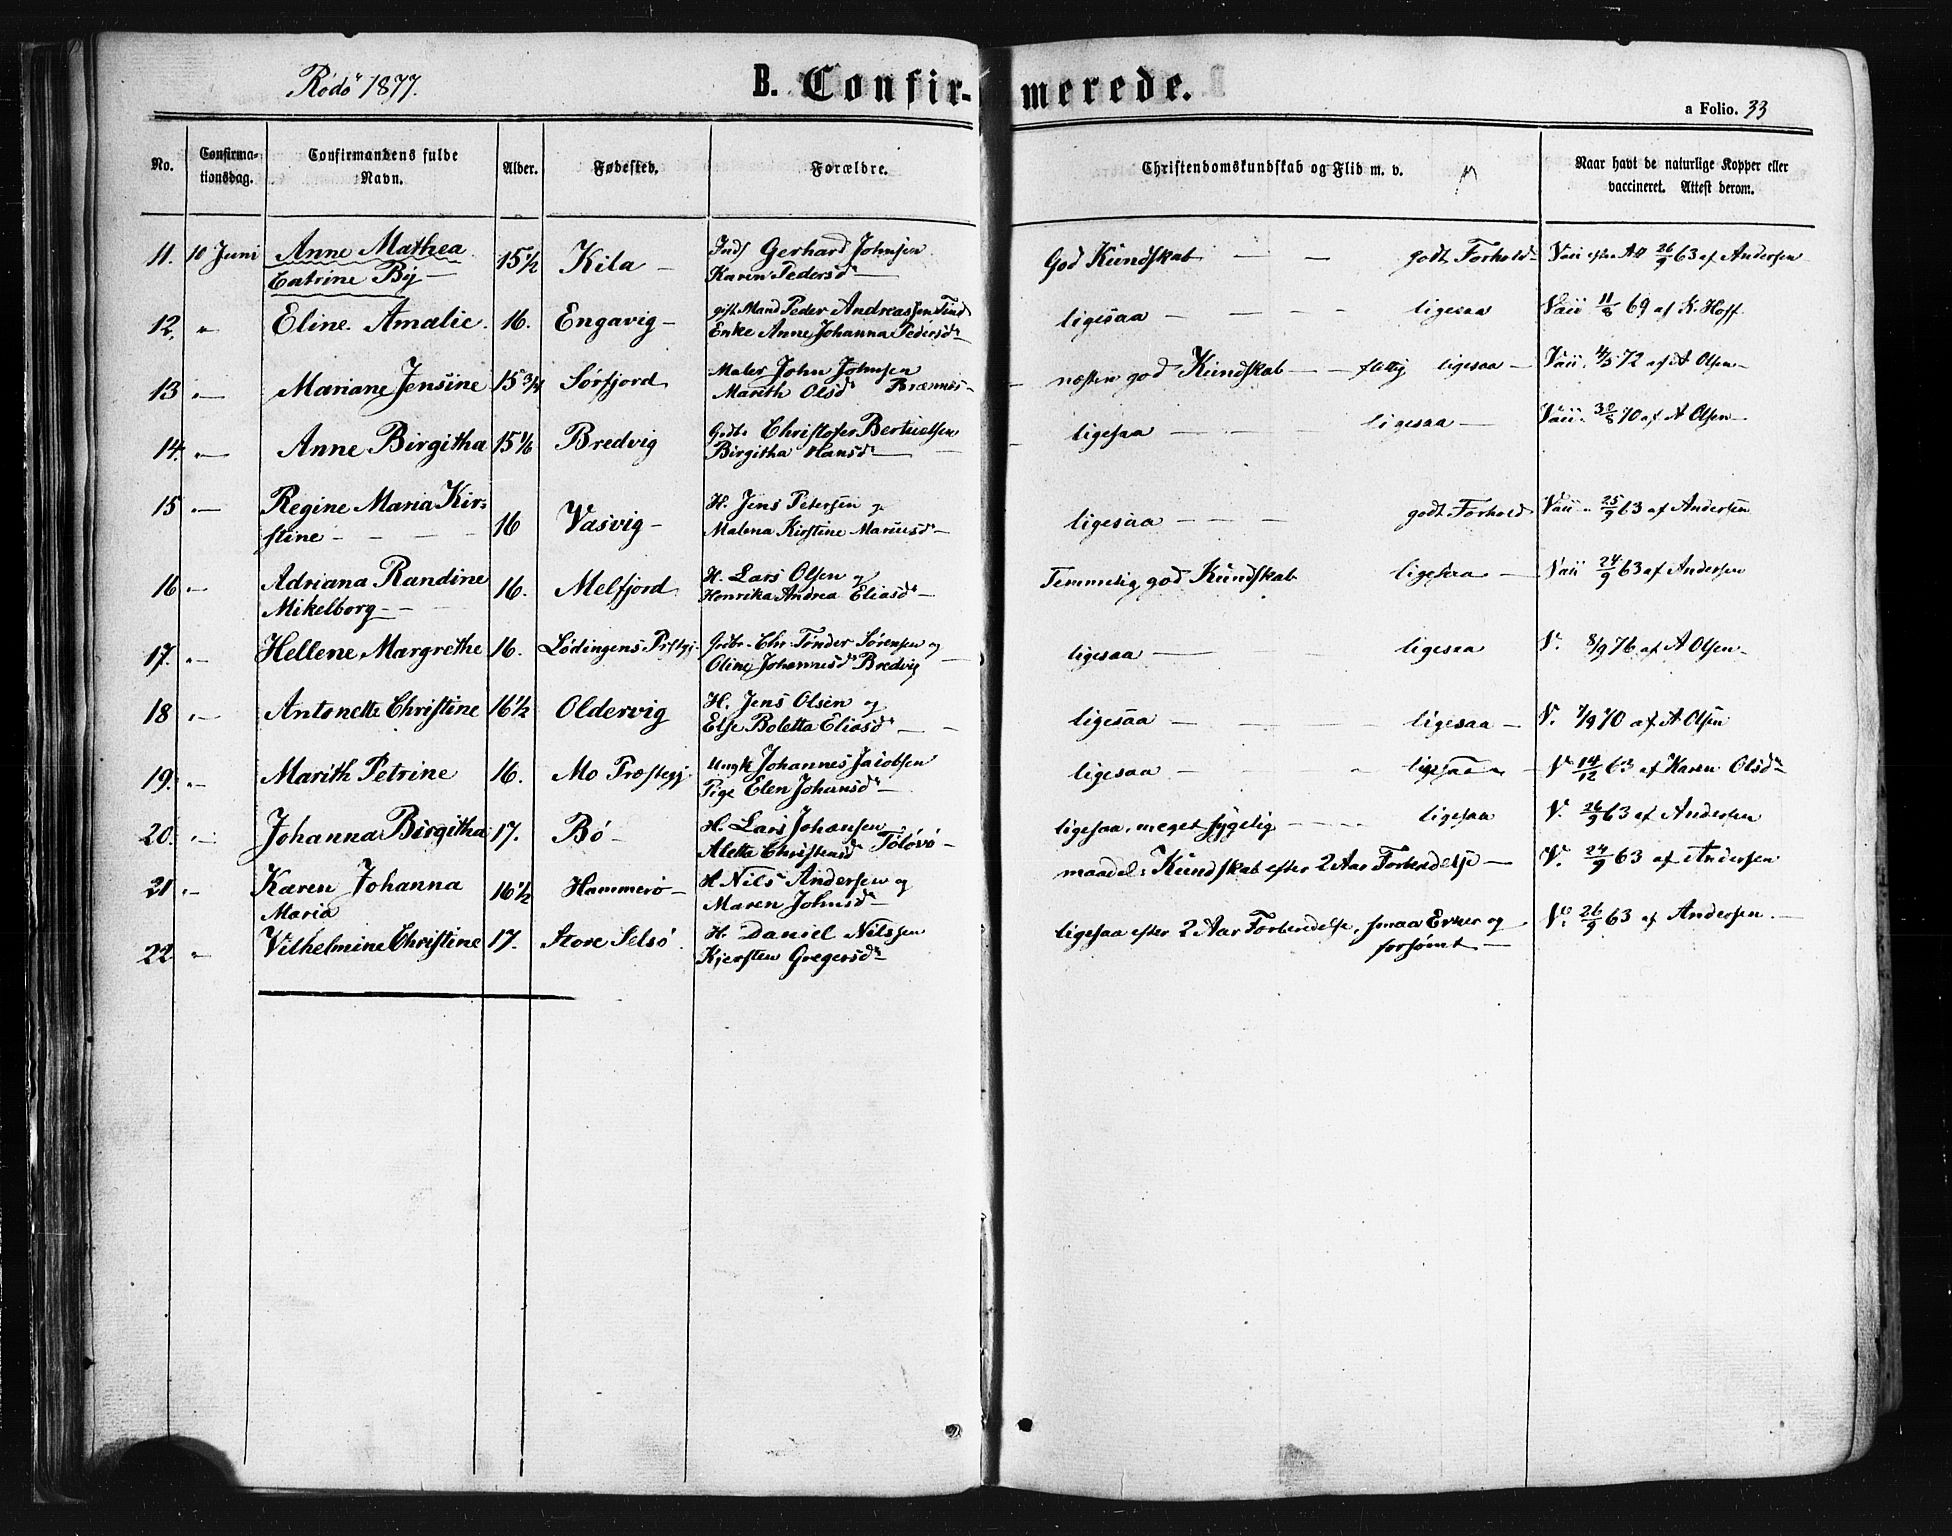 Rödö 1877.
B. Confir- merede.
a Folio. 33
No. Confirma-tionsdag. Confirmandens fulde Navn. Alder. Fødested. Forældre. Christendomskundskab og Flid m. v. Naar havt de naturlige Kopper eller vaccineret. Attest derom.
11. 10 Juni Anne Mathea 15 1/2 Kila – Inds Gerhard Johnsen God Kundskab — — godt Forhold Vaci efter Att 26/9 63 af Andersen
Catrine By Karen Pedersd
12. " Eline Amalie. 16. Engavig – gift Mand Peder Andreassen Tind ligesaa — — — — ligesaa Vaci 11/8 69 af K. Hoff
Enke Anne Johanna Pedersd
13 " Mariane Jensine 15 3/4 Sørfjord Maler John Johnsen næsten god Kundskab — flittig ligesaa — Vaci. 4/5 72 af A Olsen –
Marith Olsd Brænnes –
14. " Anne Birgitha 15 1/6 Bredvig Gdbr Christofer Bertuelsen ligesaa — — ligesaa — Vaci. 30/8 70 af A Olsen –
Birgitha Hansd
15 " Regine Maria Kir- H. Jens Petersen og godt Forhold Vaci " 25/9 63 af Andersen
stine – – – – 16 Vasvig – Malena Kirstine Mariusd – ligesaa — — —
16 " Adriana Randine 16. Melfjord H. Lars Olsen og Temmelig god Kundskab ligesaa — Vaci 24/9 63 af Andersen
Mikelborg – – Henrika Andrea Eliasd –
17. " Hellene Margrethe 16. Lødingens Præstgj. Grbr. Chr. Tønder Sørensen og ligesaa — — ligesaa V. 8/9 76 af A Olsen –
Oline Johannesd Bredvig
18 " Antonette Christine 16 1/2 Oldervig H. Jens Olsen og ligesaa — — — ligesaa – V. 7/9 70 af A Olsen
Else Boletta Eliasd –
19. " Marith Petrine 16. Mo Præstegj. Ungk Johannes Jacobsen ligesaa — — " ligesaa – V. 14/12 63 af Karen Olsd
Pige Elen Johansd –
20. " Johanna Birgitha 17. Bö – H. Lars Johansen ligesaa, meget sygelig — — ligesaa V. 26/9 63 af Andersen
Aletta Christensd Tölövö –
21 " Karen Johanna 16 1/2 Hammerö – H. Nils Andersen og maadel: Kundskab efter 2 Aar Forberedelse — V. 24/9 63 af Andersen
Maria Maren Johnsd
22 " Vilhelmine Christine 17. Store Selsö. H. Daniel Nilssen ligesaa efter 2 Aar Forberedelse, smaa Evner og V. 26/9 63 af Andersen. —
Kjersten Gregersd forsømt —